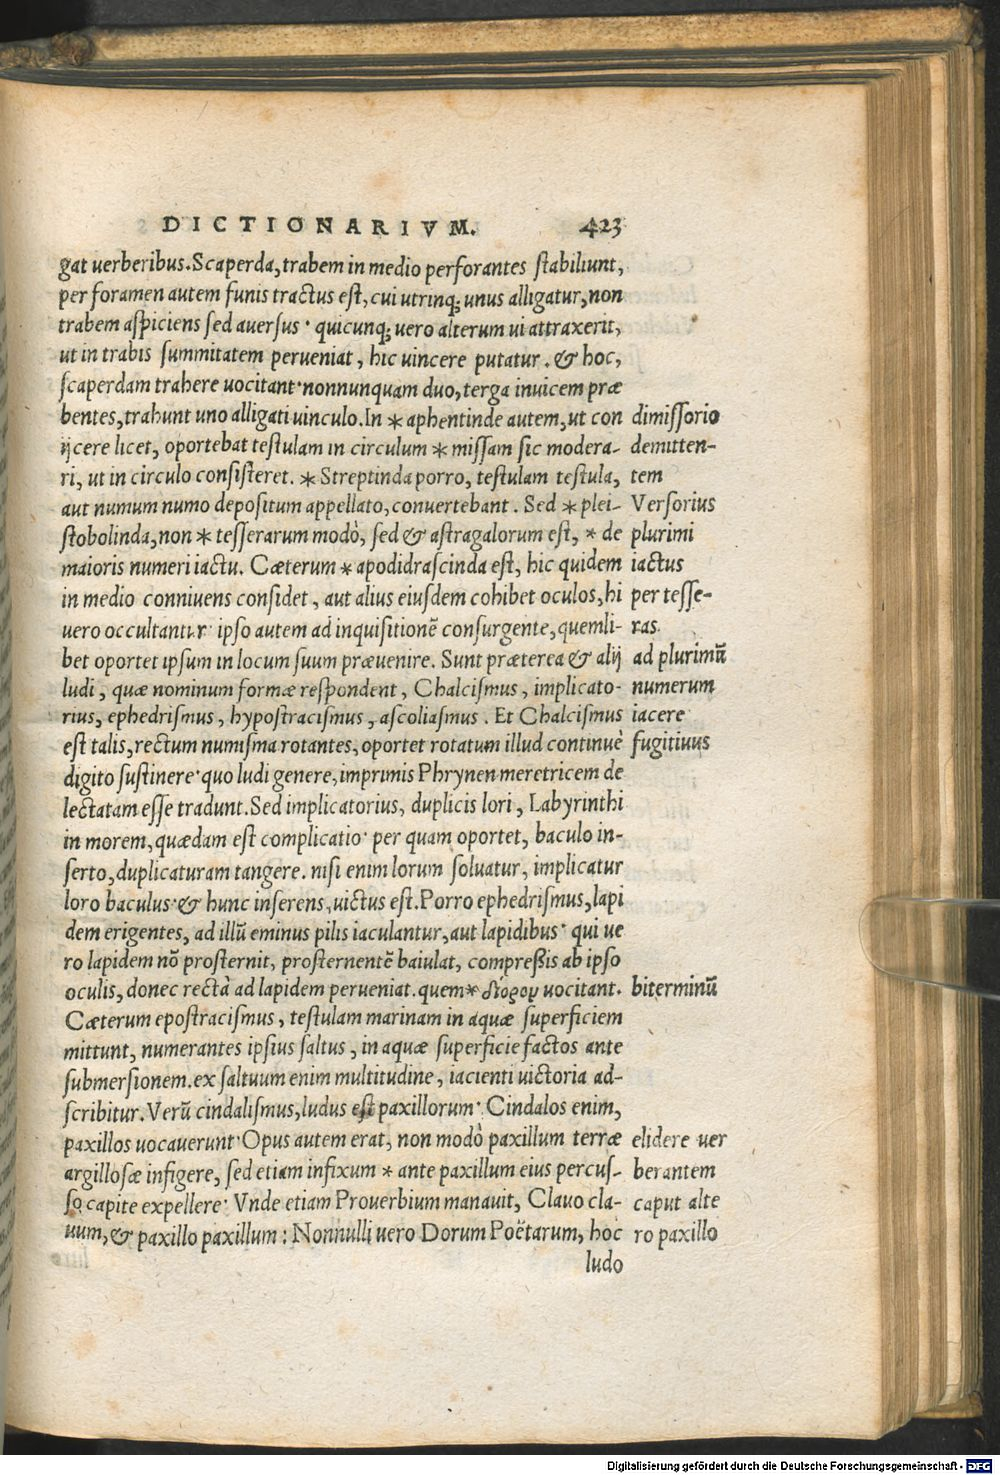 DICTIONARIVM. 423
gat uerberibus. Scaperda, trabem in medio perforantes stabiliunt,
per foramen autem funis tractus est, cui utrinq; unus alligatur, non
trabem aspiciens sed auersus· quicunq; uero alterum ui attraxerit,
ut in trabis summitatem perueniat, hic uincere putatur. & hoc,
scaperdam trahere uocitant· nonnunquam duo, terga inuicem præ
bentes, trahunt uno alligati uinculo. In * aphentinde autem, ut con dimissorio
ijcere licet, oportebat testulam in circulum * missam sic modera- demitten-
ri, ut in circulo consisteret. * Streptinda porro, testulam testula, tem
aut numum numo depositum appellato, conuertebant. Sed * plei- Versorius
stobolinda, non * tesserarum modò, sed & astragalorum est, * de plurimi
maioris numeri iactu. Cæterum * apodidrascinda est, hic quidem iactus
in medio conniuens considet, aut alius eiusdem cohibet oculos, hi per tesse-
uero occultantur· ipso autem ad inquisitionē consurgente, quemli- ras
bet oportet ipsum in locum suum præuenire. Sunt præterea & alij ad plurimū
ludi, quæ nominum formæ respondent, Chalcismus, implicato- numerum
rius, ephedrismus, hypostracismus, ascoliasmus. Et Chalcismus iacere
est talis, rectum numisma rotantes, oportet rotatum illud continuè fugitiuus
digito sustinere· quo ludi genere, imprimis Phrynen meretricem de
lectatam esse tradunt. Sed implicatorius, duplicis lori, Labyrinthi
in morem, quædam est complicatio· per quam oportet, baculo in-
serto, duplicaturam tangere. nisi enim lorum soluatur, implicatur
loro baculus· & hunc inserens, uictus est. Porro ephedrismus, lapi
dem erigentes, ad illū eminus pilis iaculantur, aut lapidibus· qui ue
ro lapidem nō prosternit, prosternentē baiulat, compreßis ab ipso
oculis, donec rectà ad lapidem perueniat. quem * δίορον uocitant. biterminū
Cæterum epostracismus, testulam marinam in aquæ superficiem
mittunt, numerantes ipsius saltus, in aquæ superficie factos ante
submersionem. ex saltuum enim multitudine, iacienti uictoria ad-
scribitur. Verū cindalismus, ludus est paxillorum· Cindalos enim,
paxillos uocauerunt· Opus autem erat, non modò paxillum terræ elidere uer
argillosæ infigere, sed etiam infixum * ante paxillum eius percus- berantem
so capite expellere· Vnde etiam Prouerbium manauit, Clauo cla- caput alte
uum, & paxillo paxillum: Nonnulli uero Dorum Poëtarum, hoc ro paxillo
ludo
Digitalisierung gefördert durch die Deutsche Forschungsgemeinschaft - DFG